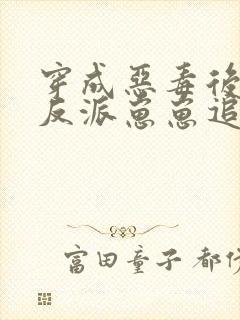 穿成惡毒後
反派崽崽追
富田童子 都